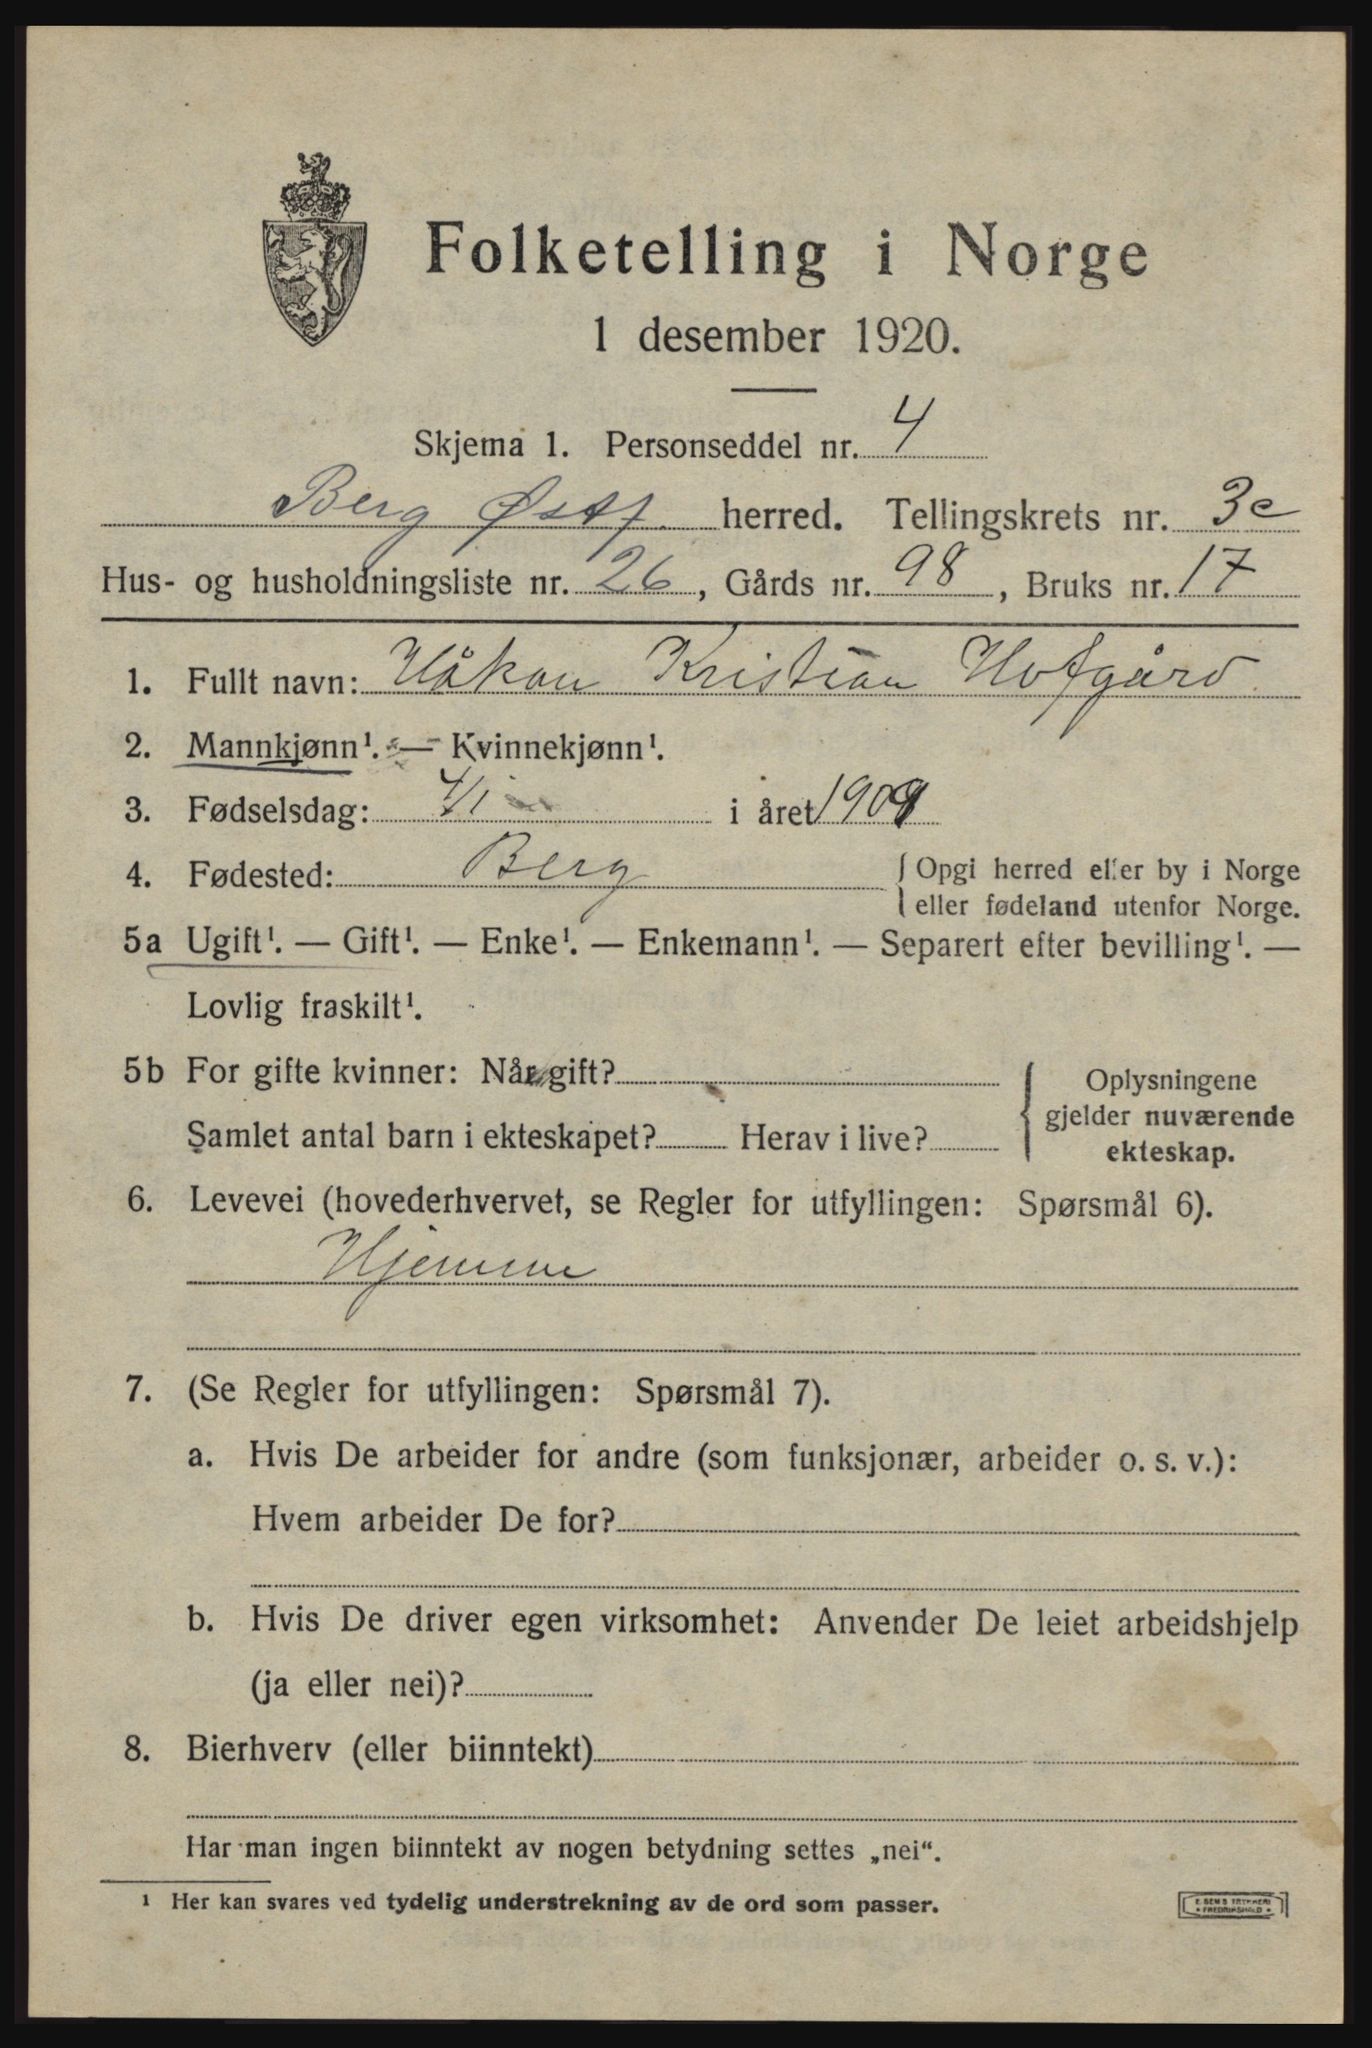 Folketelling i Norge
1 desember 1920.
Skjema 1. Personseddel nr. 4
Berg Østf. herred. Tellingskrets nr. 3c
Hus- og husholdningsliste nr. 26, Gårds nr. 98, Bruks nr. 17
1. Fullt navn: Håkon Kristian Hofgård
2. Mannkjønn¹. — Kvinnekjønn¹.
3. Fødselsdag: 4/1 i året 1909
4. Fødested: Berg { Opgi herred eller by i Norge
eller fødeland utenfor Norge.
5a Ugift¹. — Gift¹. — Enke¹. — Enkemann¹. — Separert efter bevilling¹. —
Lovlig fraskilt¹.
5b For gifte kvinner: Når gift?
Samlet antal barn i ekteskapet? Herav i live?
{ Oplysningene
gjelder nuværende
ekteskap.
6. Levevei (hovederhvervet, se Regler for utfyllingen: Spørsmål 6).
Hjemme
7. (Se Regler for utfyllingen: Spørsmål 7).
a. Hvis De arbeider for andre (som funksjonær, arbeider o. s. v.):
Hvem arbeider De for?
b. Hvis De driver egen virksomhet: Anvender De leiet arbeidshjelp
(ja eller nei)?
8. Bierhverv (eller biinntekt)
Har man ingen biinntekt av nogen betydning settes „nei“.
¹ Her kan svares ved tydelig understrekning av de ord som passer.
E. SEM'S TRYKKERI
FREDRIKSHALD